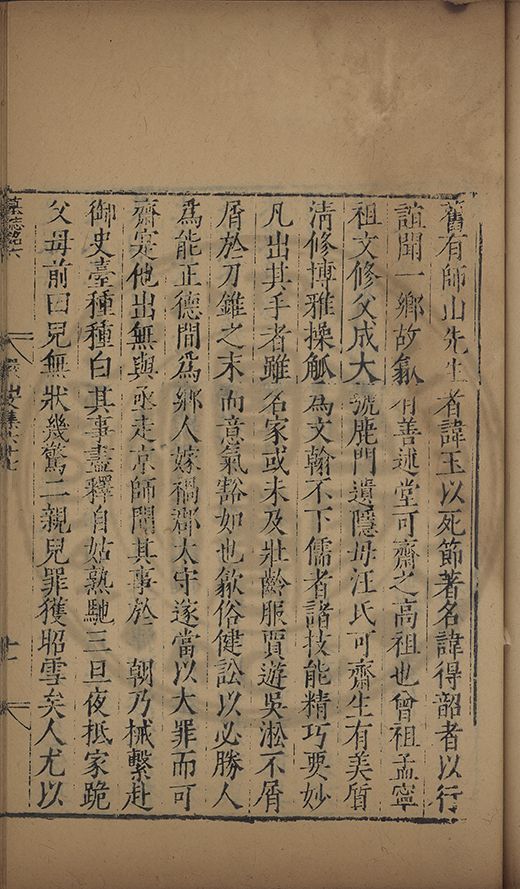 舊有師山先生者諱玉以死節著名諱得韶者以行
誼聞一鄉故歙有善述堂可齋之高祖也曾祖孟寧
祖文修父成大號鹿門遺隱母汪氏可齋生有美質
清修博雅操觚為文翰不下儒者諸技能精巧要妙
凡出其手者雖名家或未及壯齡服賈遊吳淞不屑
屑於刀錐之末而意氣豁如也歙俗健訟以必勝人
為能正德間為鄉人嫁禍郡太守遂當以大罪而可
齋寔他出無與亟走京師聞其事於 朝乃械繫赴
御史臺種種白其事盡釋自姑熟馳三旦夜抵家跪
父母前曰兒無狀幾驚二親兒罪獲昭雪矣人尤以
十一